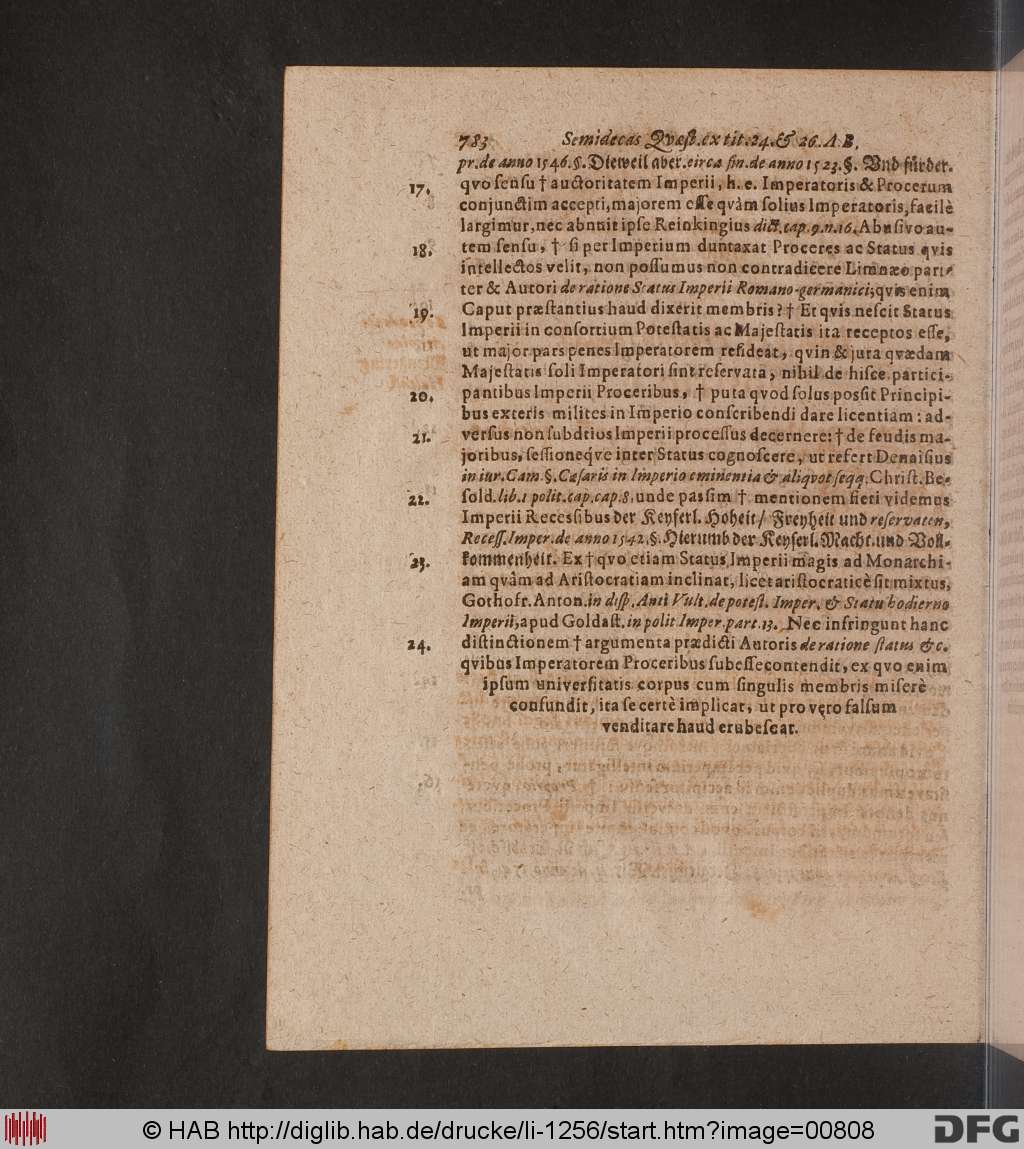 783 Semidecas Quæst. ex tit. 24. & 26. A. B,
pr. de anno 1546. §. Dieweil aber. circa fin. de anno 1523. §. Und fürder.
17. qvo sensu † auctoritatem Imperii, h. e. Imperatoris & Procerum
conjunctim accepti, majorem esse qvàm solius Imperatoris, facilè
largimur, nec abnuit ipse Reinkingius dict. cap. 9. n. 16. Abusivo au-
18. tem sensu, † si per Imperium duntaxat Proceres ac Status qvis
intellectos velit, non possumus non contradicere Limnæo pari-
ter & Autori de ratione Status Imperii Romano-germanici; qvis enim
19. Caput præstantius haud dixerit membris? † Et qvis nescit Status
Imperii in consortium Potestatis ac Majestatis ita receptos esse,
ut major pars penes Imperatorem resideat, qvin & jura qvædam
Majestatis soli Imperatori sint reservata, nihil de hisce partici-
20. pantibus Imperii Proceribus, † puta qvod solus possit Principi-
bus exteris milites in Imperio conscribendi dare licentiam: ad-
21. versus non subdtios Imperii processus decernere: † de feudis ma-
joribus, sessioneqve inter Status cognoscere, ut refert Dennisius
in iur. Cam. §. Cæsaris in Imperio eminentia & aliqvot seqq. Christ. Be-
22. sold. lib. 1 polit. cap. cap. 8. unde passim † mentionem fieri videmus
Imperii Recessibus der Keyserl. Hoheit/ Freyheit und reservaten,
Recess. Imper. de anno 1542. §. Hierumb der Keyserl. Macht und Voll-
23. kommenheit. Ex † qvo etiam Status Imperii magis ad Monarchi-
am qvâm ad Aristocratiam inclinat, licet aristocraticè sit mixtus,
Gothofr. Anton. in disp. Anti Vult. de potest. Imper. & Statu hodierno
Imperii, apud Goldast. in polit Imper. part. 13. Nec infringunt hanc
24. distinctionem † argumenta prædicti Autoris de ratione status &c.
qvibus Imperatorem Proceribus subesse contendit, ex qvo enim
ipsum universitatis corpus cum singulis membris miserè
confundit, ita se certè implicat, ut pro vero falsum
venditare haud erubescat.
© HAB http://diglib.hab.de/drucke/li-1256/start.htm?image=00808
DFG